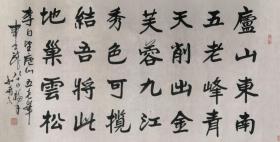 廬山東南
五老峰青
天削出金
芙蓉九江
秀色可攬
結吾將此
地巢雲松
李白望廬山五老峯